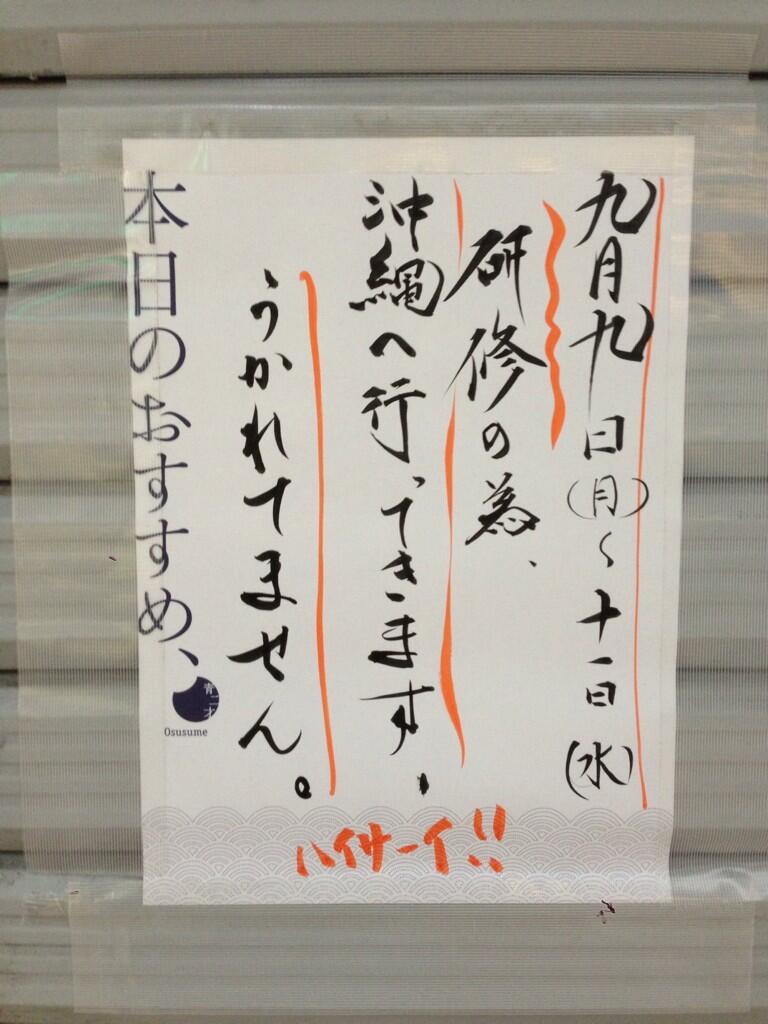 九月九日(月)〜十一日(水)
研修の為、
沖縄へ行ってきます.
うかれてません。
本日のおすすめ、
青二才
Osusume
ハイサーイ!!